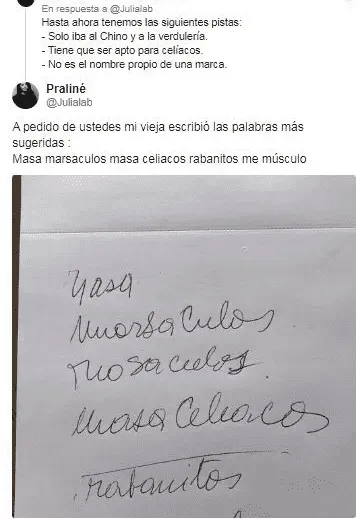 En respuesta a @Julialab
Hasta ahora tenemos las siguientes pistas:
- Solo iba al Chino y a la verdulería.
- Tiene que ser apto para celíacos.
- No es el nombre propio de una marca.
Praliné
@Julialab
A pedido de ustedes mi vieja escribió las palabras más
sugeridas :
Masa marsaculos masa celiacos rabanitos me músculo
Masa
Marsaculos
Mosaculos
Masa Celiacos
rabanitos